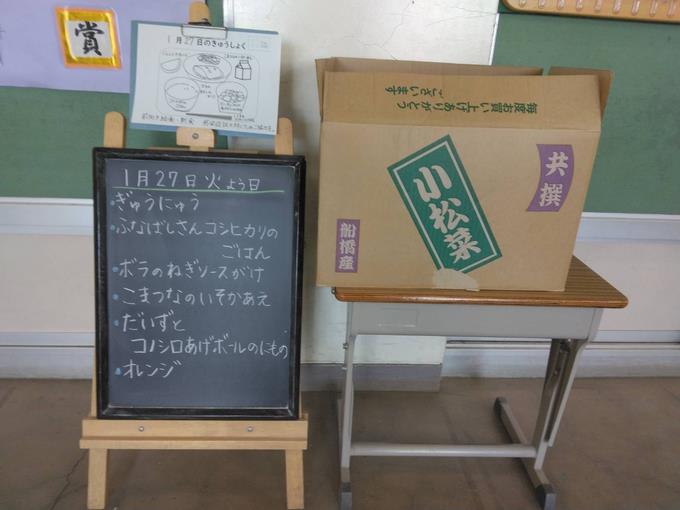 賞
1月27日のきゅうしょく
1月27日火よう日
・ぎゅうにゅう
・ふなばしさんコシヒカリの
ごはん
・ボラのねぎソースがけ
・こまつなのいそかあえ
・だいずと
コノシロあげボールのにもの
・オレンジ
毎度お買い上げありがとう
ございます
共撰
小松菜
船橋産